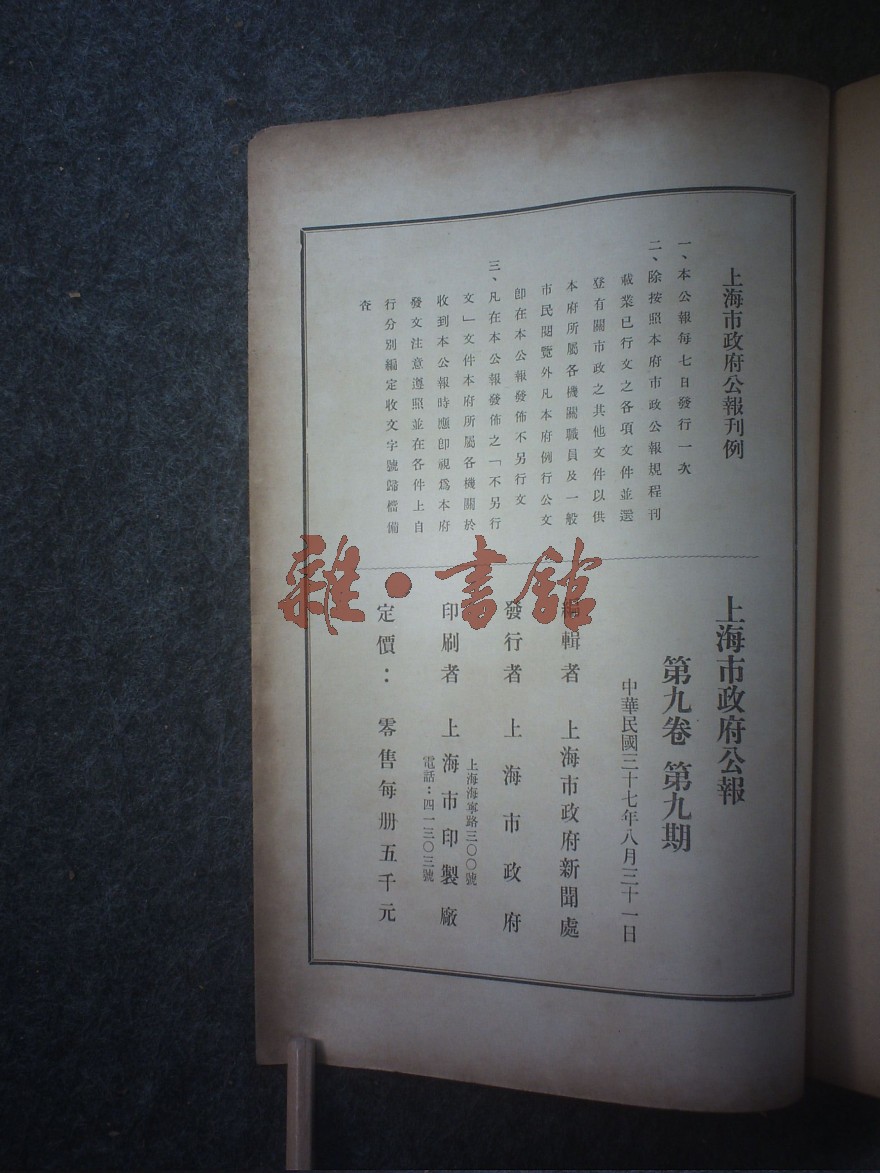 上海市政府公報刊例
一、本公報每七日發行一次
二、除按照本府市政公報規程刊
載業已行文之各項文件並選
登有關市政之其他文件以供
本府所屬各機關職員及一般
市民閱覽外凡本府例行公文
卽在本公報發佈不另行文
三、凡在本公報發佈之「不另行
文」文件本府所屬各機關於
收到本公報時應卽視爲本府
發文注意遵照並在各件上自
行分別編定收文字號歸檔備
查
上海市政府公報
第九卷 第九期
中華民國三十七年八月三十一日
編輯者 上海市政府新聞處
發行者 上海市政府
印刷者 上海市印製廠
上海海寧路三〇〇號
電話：四一三〇三號
定價： 零售每册五千元
雜·書館